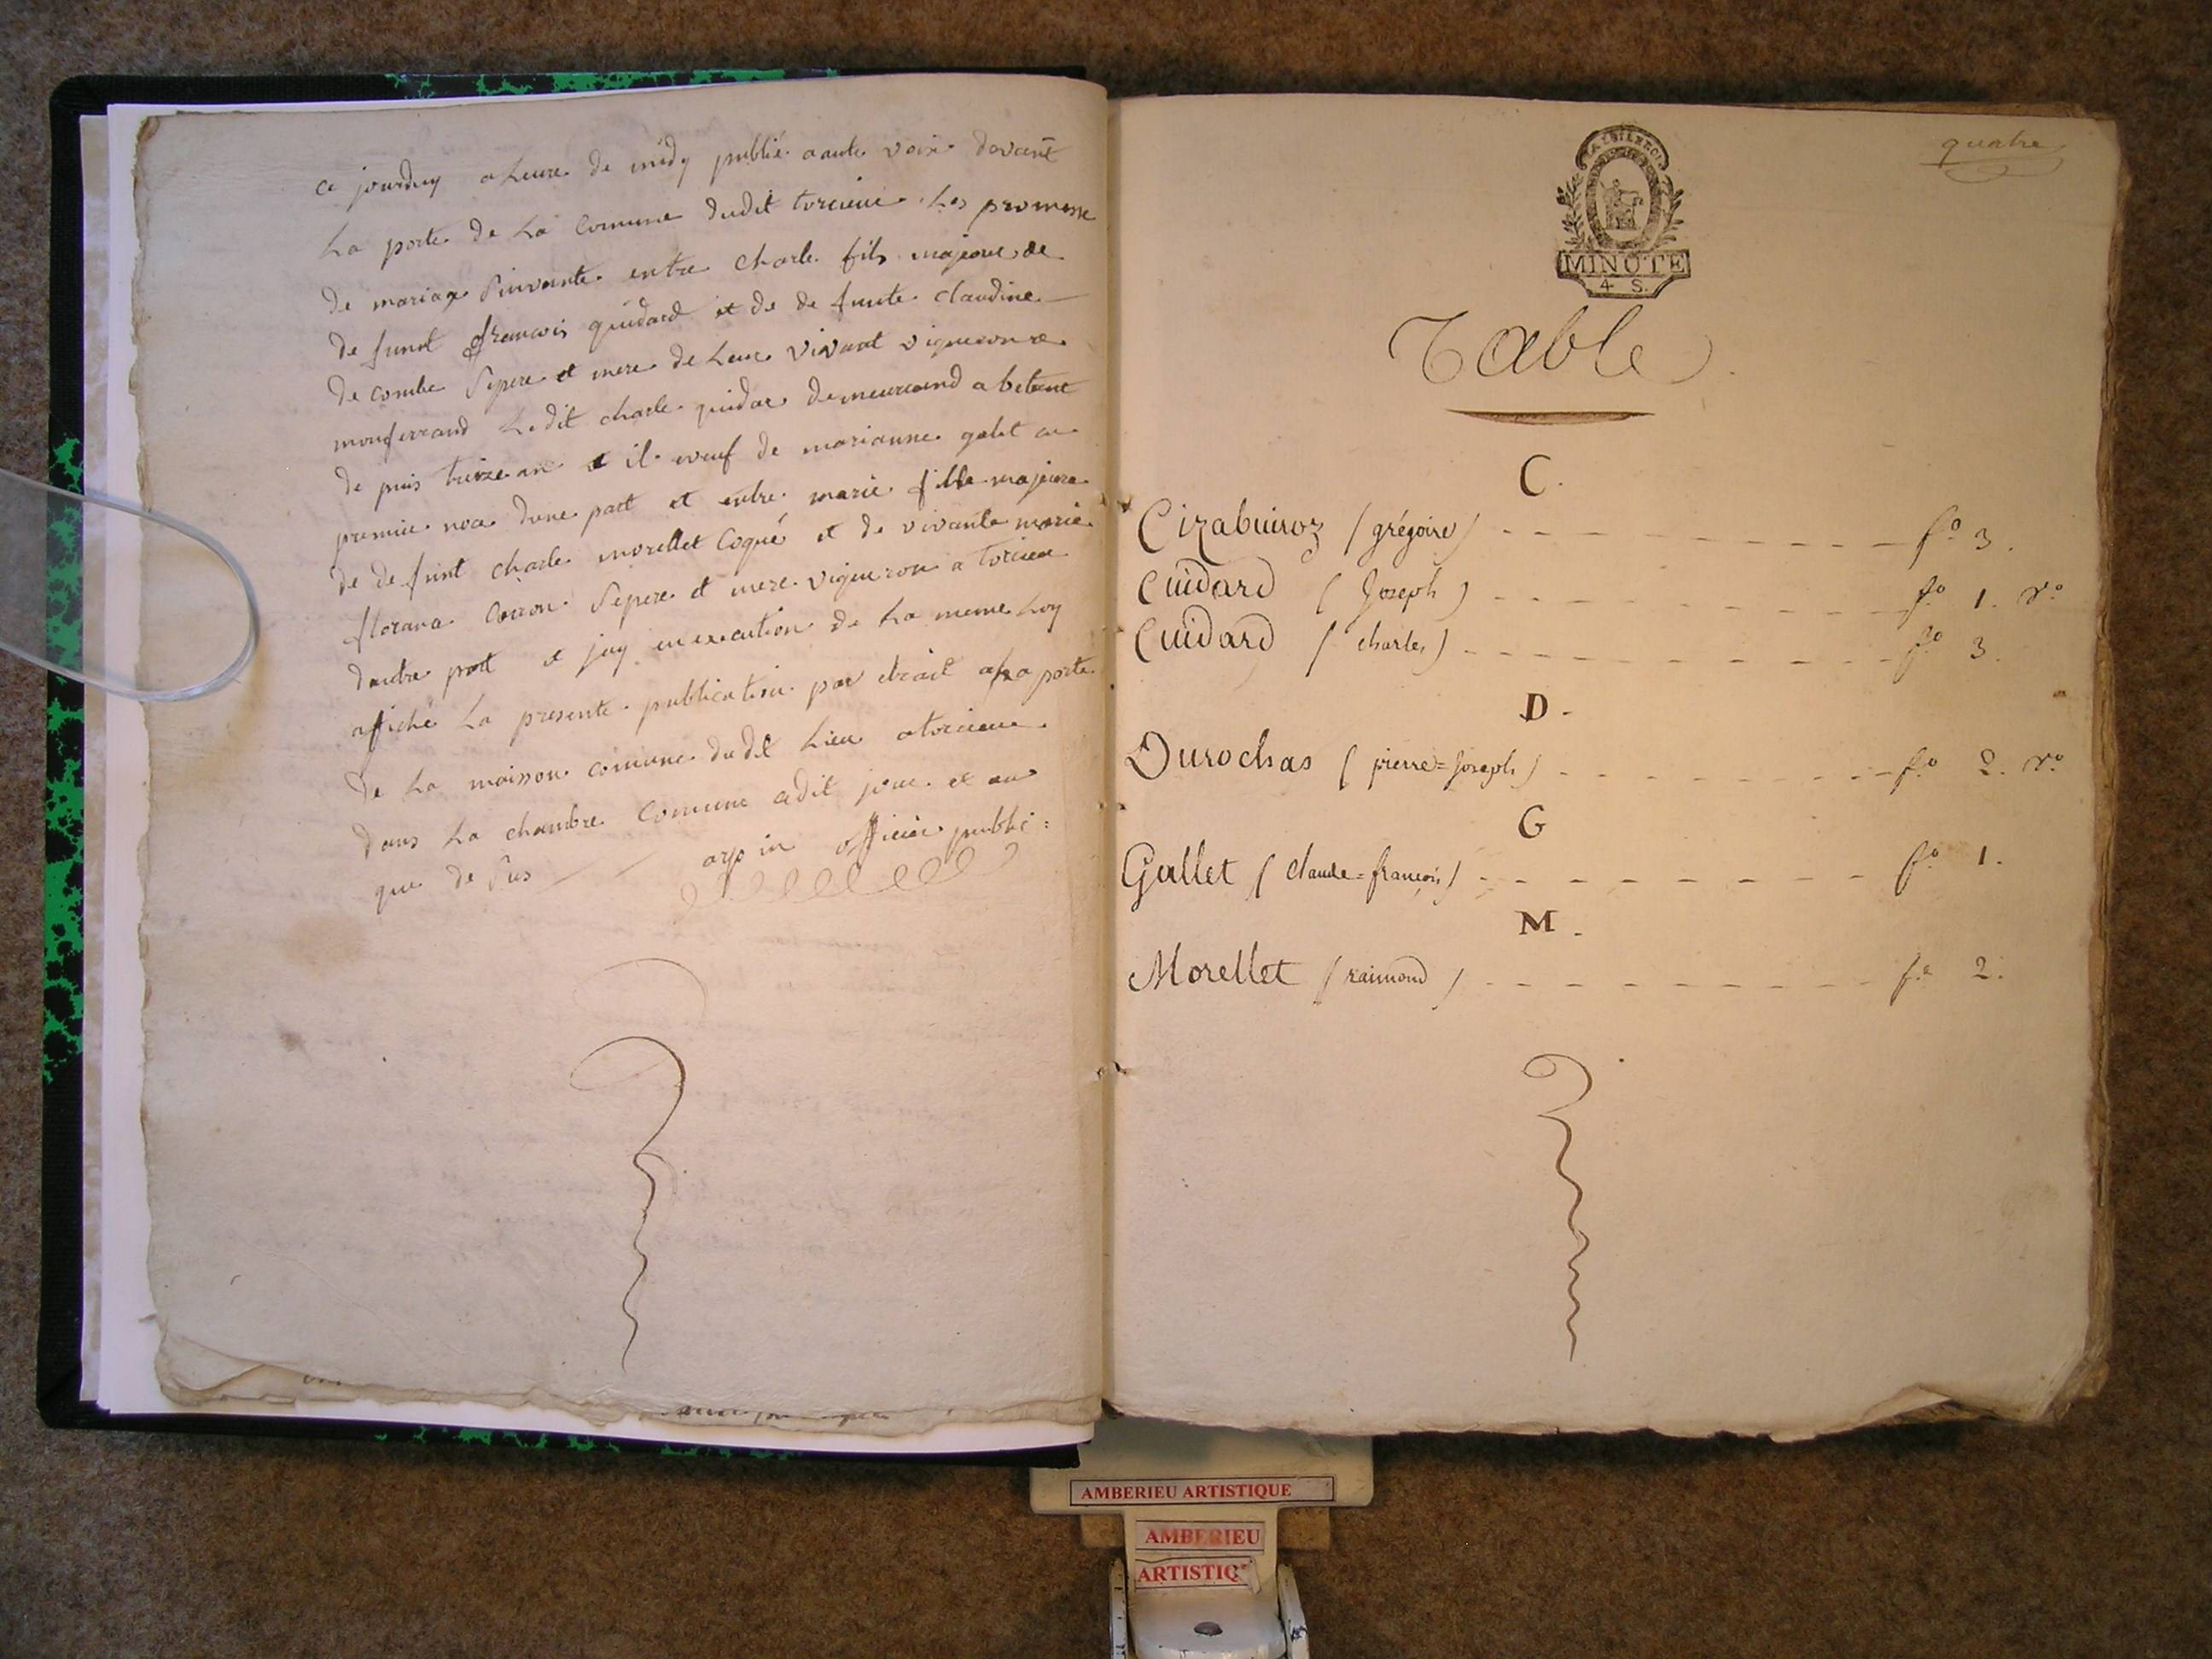 ce jourduy a heure de midy publié aaute voix devant
La porte de La Comune dudit torcieu Les promesse
de mariage suivante entre charle fils majeur de
de funt francois guidard et de de funte claudine
de combe Sepere et mere de Leur vivant vigneron a
monferrand Ledit charle guidar demeurand a betant
de puis treize an et il veuf de marianne galet en
premier noce dune part et entre marie fille majeure
de de funt charle morellet Coque et de vivante marie
florana Sepere et mere vigneron a torcieu
dautre part et jay en execution de La meme Loy
affiché La presente publication par etrait a La porte
de La maisson comune dudit Lieu a torcieu
dans La chambre Comune cedit jour et an
que de sus arpin officier publi=
quatre
MINUTE
4 S.
Table
C.
Cizabuiroz (grégoire) fo 3.
Cuidard (Joseph) fo 1. vo
Cuidard (charles) fo 3.
D.
Durochas (pierre=Joseph) fo 2. vo
G
Gallet (claude=françois) fo 1.
M.
Morellet (raimond) fo 2.
AMBERIEU ARTISTIQUE
AMBERIEU
ARTISTIQ